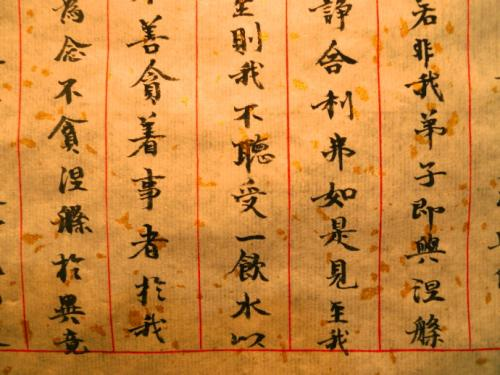 若非我弟子即興涅槃
諍舍利弗如是見至我
則我不聽受一飲水以
善貪着事者於我
為念不貪涅槃於異竟